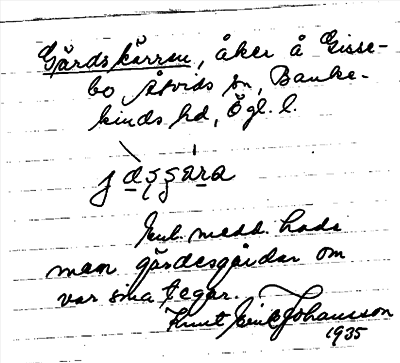 Gärdskärren, åker å Gisse-
bo Åtvids sn, Banke-
kinds hd, Ögl. l.
Enl. medd. hade
man gärdesgårdar om
var sina tegar.
Knut Erik Johansson
1935